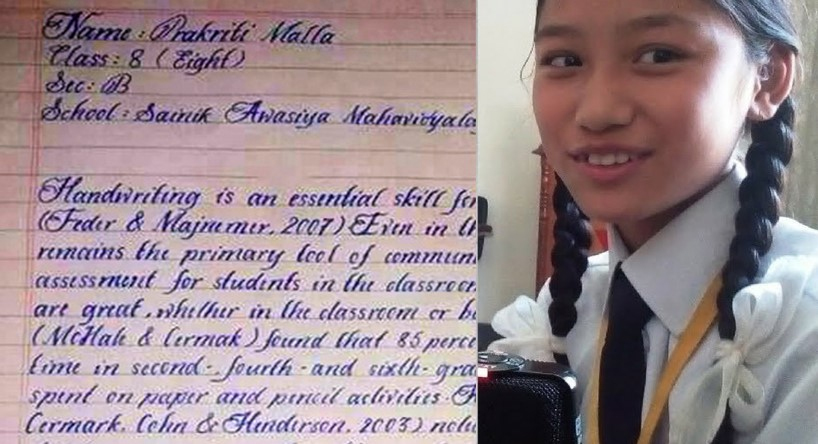 Name : Prakriti Malla
Class : 8 (Eight)
Sec : B
School : Sainik Awasiya Mahavidyala
Handwriting is an essential skill for
(Feder & Majnemer, 2007) Even in th
remains the primary tool of commun
assessment for students in the classroom
are great, whether in the classroom or b
(McHale & Cermak) found that 85 perce
time in second-, fourth - and sixth- gra
spent on paper and pencil activities.
Cermark, Cehn & Henderson, 2003), not